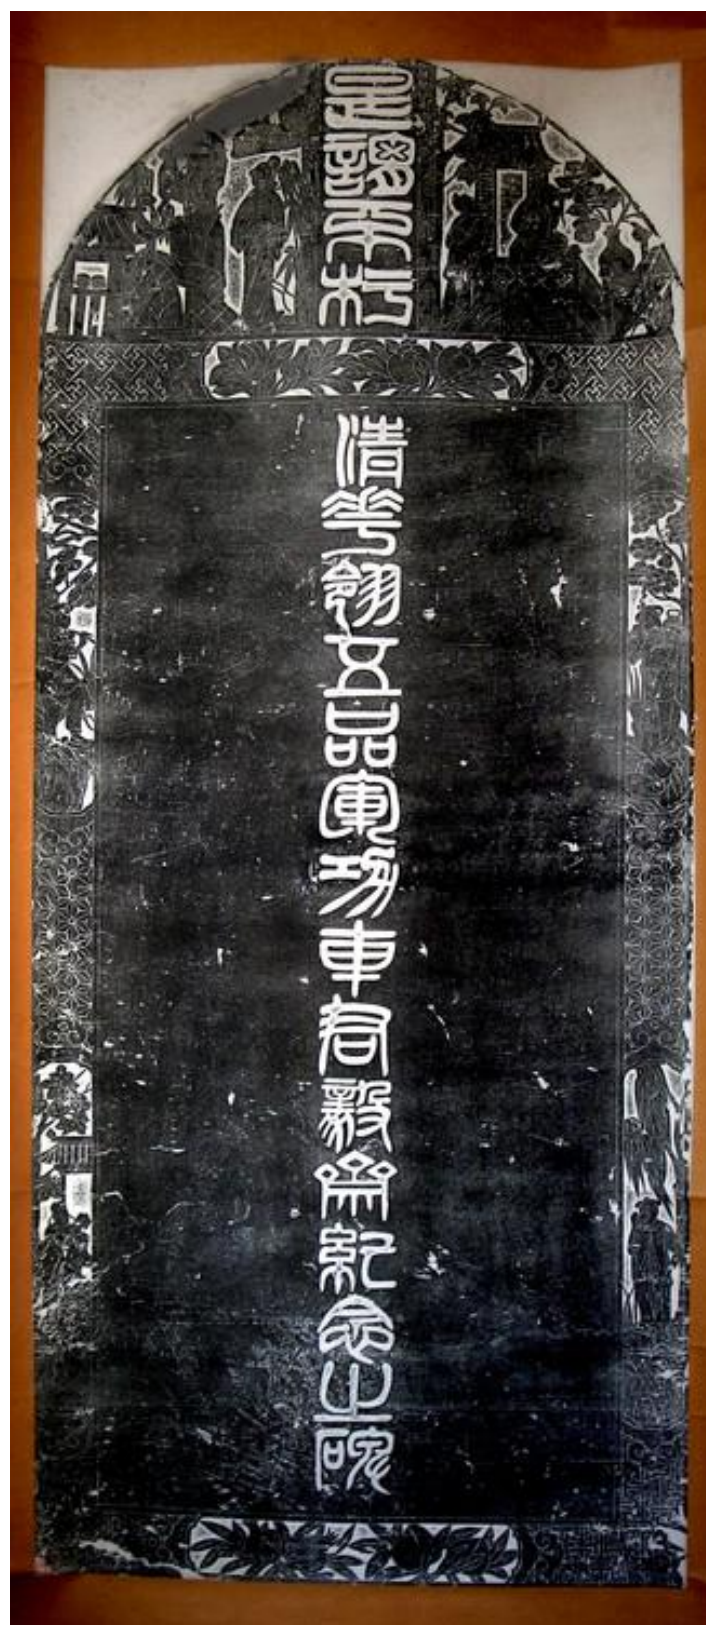 是謂不朽
清花翎五品軍功車君毅齋紀念之碑